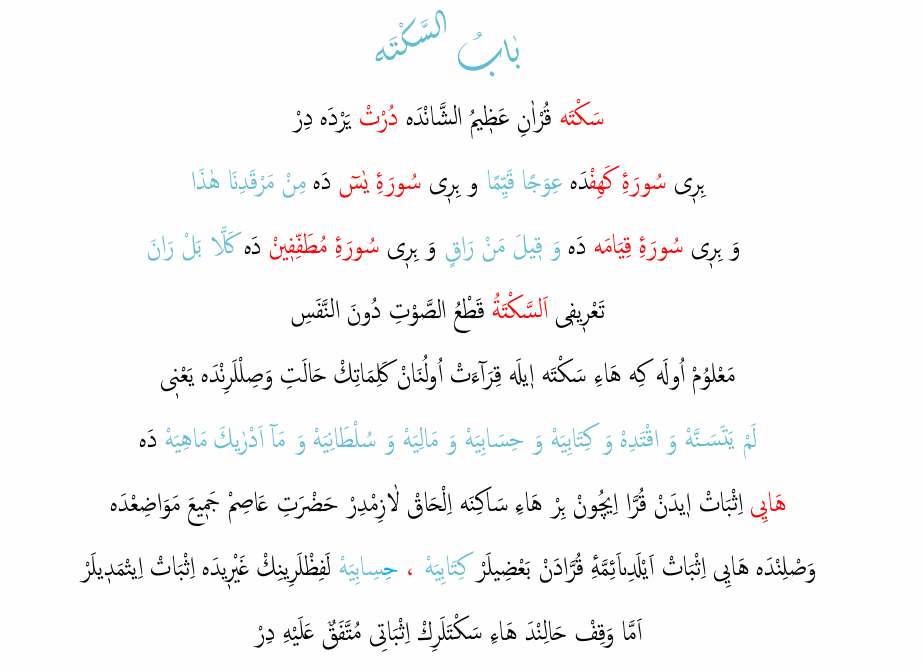 بَابُ السَّكْتَه
سَكْتَه قُرْاٰنِ عَظِيمُ الشَّانْدَه دُرْتْ يَرْدَه دِرْ
بِرِى سُورَۀِ كَهِفْدَه عِوَجًا قَيِّمًا و بِرِى سُورَۀِ يٰسٓ دَه مِنْ مَرْقَدِنَا هٰذَا
وَ بِرِى سُورَۀِ قِيَامَه دَه وَ قِيلَ مَنْ رَاقٍ وَ بِرِى سُورَۀِ مُطَفِّفِينْ دَه كَلَّا بَلْ رَانَ
تَعْرِيفِى اَلسَّكْتَةُ قَطْعُ الصَّوْتِ دُونَ النَّفَسِ
مَعْلوُمْ اُولَه كِه هَاءِ سَكْتَه اِيلَه قِرَآءَتْ اُولُنَانْ كَلِمَاتِكْ حَالَتِ وَصِلْلَرِنْدَه يَعْنِى
لَمْ يَتَسَنَّهْ وَ اقْتَدِهْ وَ كِتَابِيَهْ وَ حِسَابِيَهْ وَ مَالِيَهْ وَ سُلْطَانِيَهْ وَ مَآ اَدْرٰيكَ مَاهِيَهْ دَه
هَايِى اِثْبَاتْ اِيدَنْ قُرَّا اِيچُونْ بِرْ هَاءِ سَاكِنَه اِلْحَاقْ لَازِمْدِرْ حَضْرَتِ عَاصِمْ جَمِيعَ مَوَاضِعْدَه
وَصْلِنْدَه هَايِى اِثْبَاتْ اَيْلَدِىاَئِمَّۀِ قُرَّادَنْ بَعْضِيلَرْ كِتَابِيَهْ ، حِسِابِيَهْ لَفِظْلَرِينِكْ غَيْرِيدَه اِثْبَاتْ اِيتْمَدِيلَرْ
اَمَّا وَقِفْ حَالِنْدَ هَاءِ سَكْتَلَرِكْ اِثْبَاتِى مُتَّفَقٌ عَلَيْهِ دِرْ